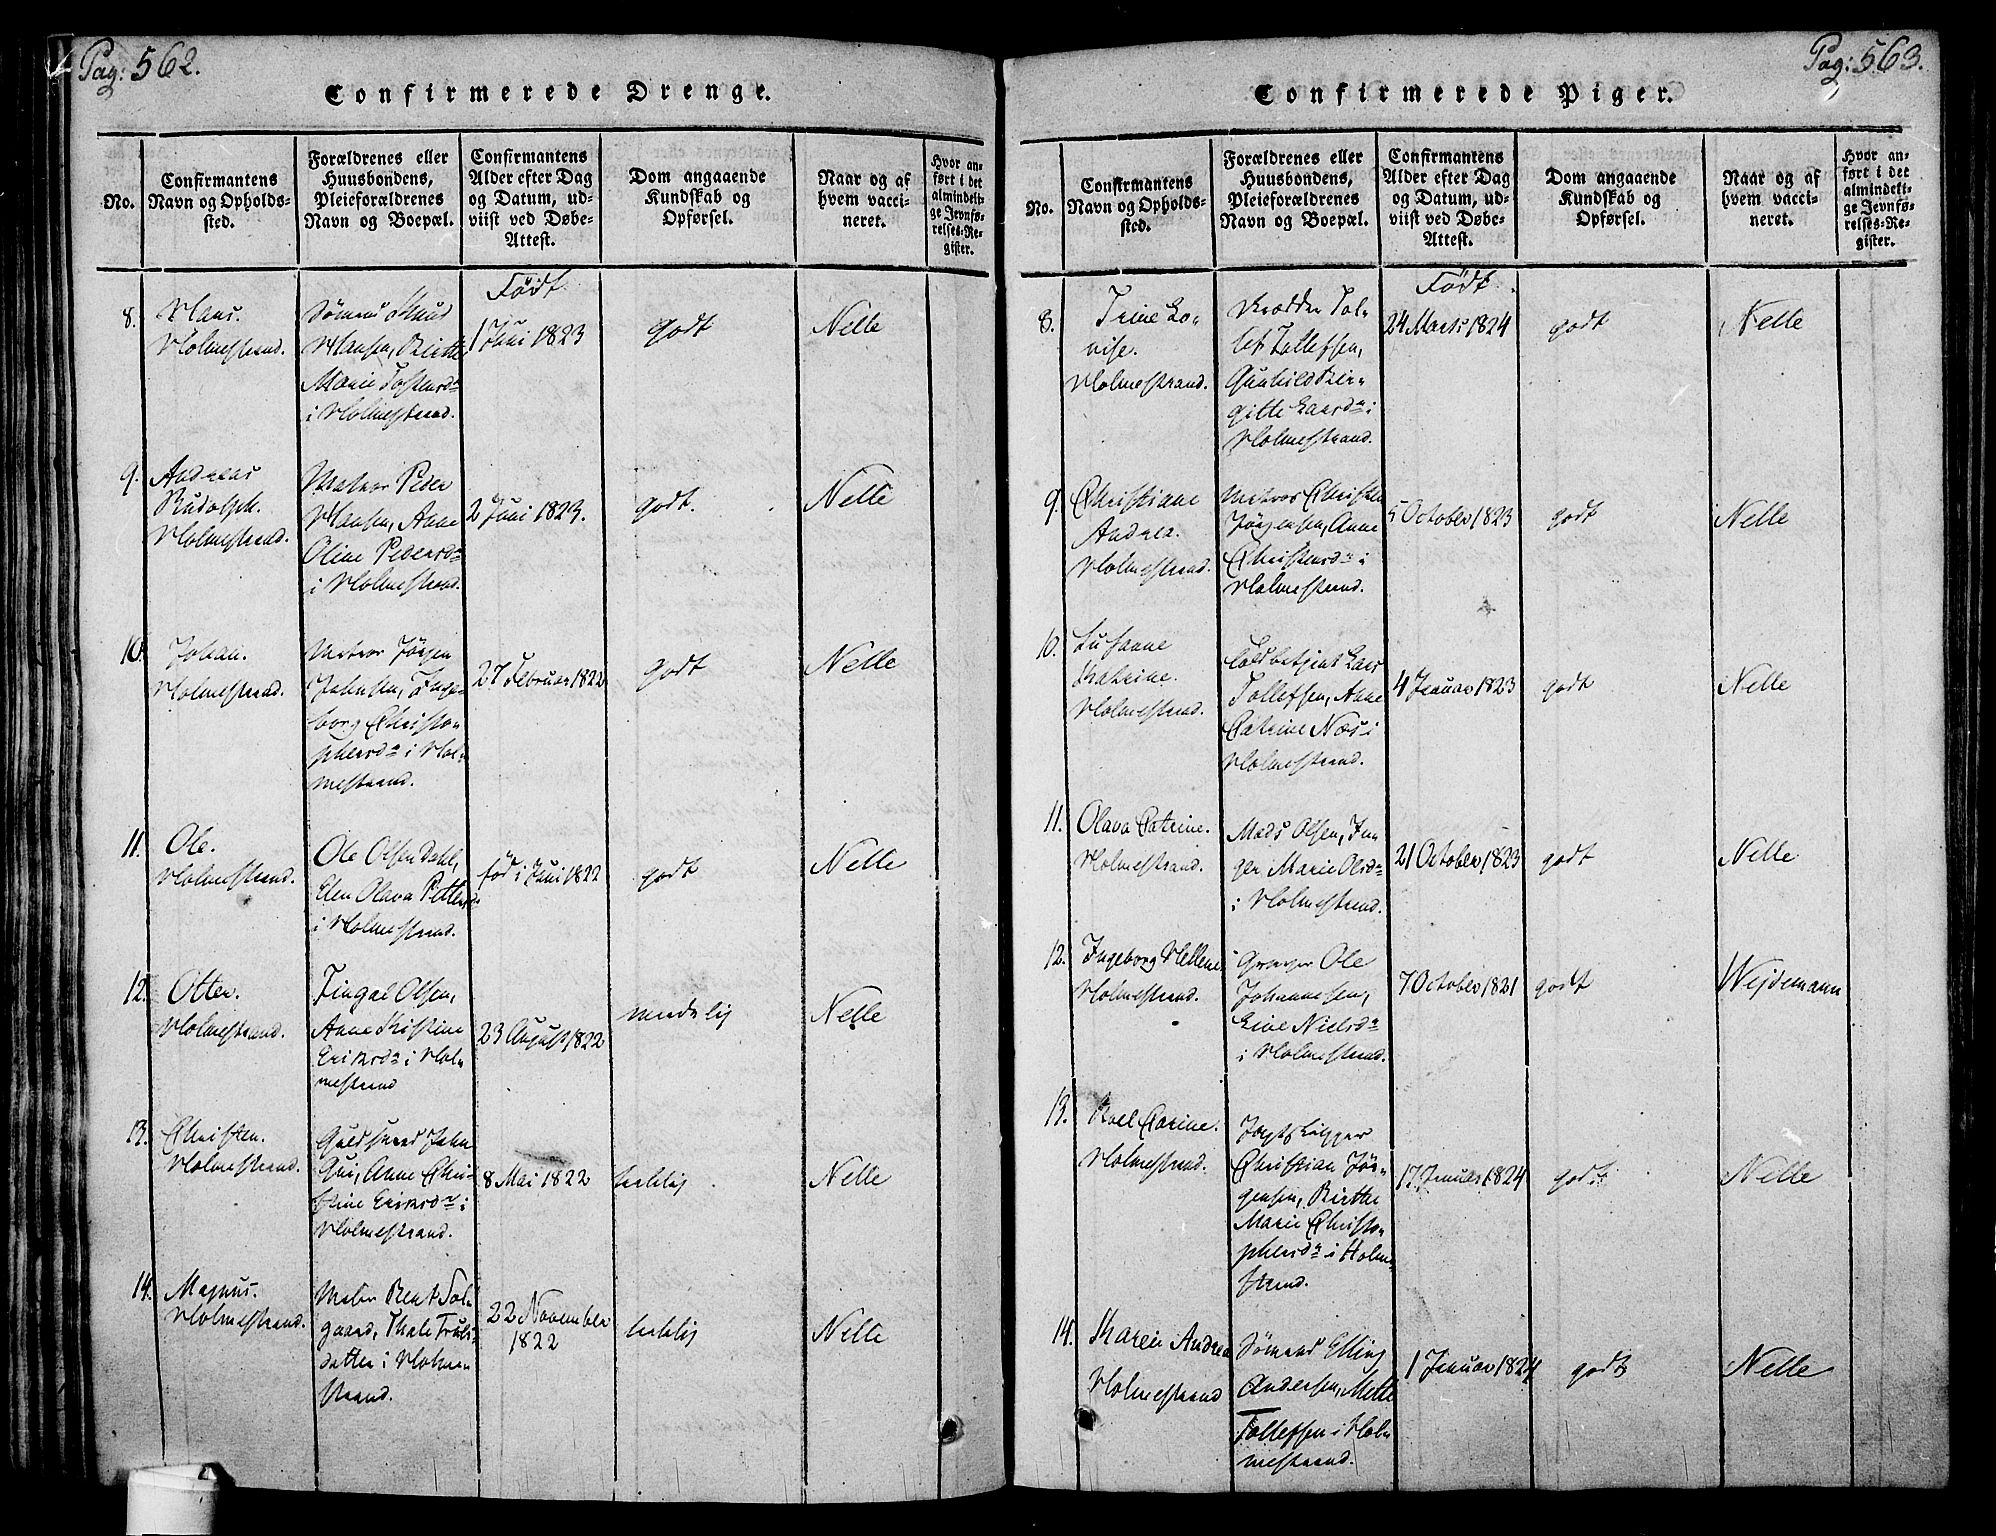 Pag: 562.
Confirmerede Drenge.
No.
Confirmantens
Navn og Opholds-
sted.
Forældrenes eller
Huusbondens,
Pleieforældrenes
Navn og Boepæl.
Confirmantens
Alder efter Dag
og Datum, ud-
viist ved Døbe-
Attest.
Dom angaaende
Kundskab og
Opførsel.
Naar og af
hvem vacci-
neret.
Hvor an-
ført i det
almindeli-
ge Jevnfø-
relses-Re-
gister.
Født
8.
Hans.
Holmestrand.
Sømand Knud
Hansen, Birthe
Marie Tostensd~
i Holmestrand.
1 Juni 1823
godt
Nelle
9.
Andreas
Rudolph.
Holmestrand.
Matros Peder
Hansen, Anne
Oline Pedersd~
i Holmestrand.
2 Juni 1823.
godt.
Nelle
10.
Johan.
Holmestrand.
Matros Jørgen
Johnsen, Inge-
borg Christo-
phersd~ i Hol-
mestrand.
27 Februar 1822
godt
Nelle
11.
Ole.
Holmestrand.
Ole Olsen Dahl,
Elen Olava Petters~
i Holmestrand.
fød i Juni 1822
godt
Nelle
12.
Otter.
Holmestrand.
Fingal Olsen,
Anne Kistine
Eriksd~ i Hol-
mestrand
23 August 1822
maadelig
Nelle
13.
Christen.
Holmestrand.
Guldsmed John
Gui, Anne Chri-
stine Eriksd~ i
Holmestrand.
8 Mai 1822
Nelle
14.
Magnus.
Holmestrand.
Maler Bent Sol-
gaard, Thale Truls-
datter i Holme-
strand.
22 November
1822
Nelle
Pag: 563.
Confirmerede Piger.
No.
Confirmantens
Navn og Opholds-
sted.
Forældrenes eller
Huusbondens,
Pleieforældrenes
Navn og Boepæl.
Confirmantens
Alder efter Dag
og Datum, ud-
viist ved Døbe-
Attest.
Dom angaaende
Kundskab og
Opførsel.
Naar og af
hvem vacci-
neret.
Hvor an-
ført i det
almindeli-
ge Jevnfø-
relses-Re-
gister.
Født
8.
Trine Lo-
vise.
Holmestrand.
Skrædder Tol-
lef Tollefsen,
Gunhild Bir-
gitte Larsd~ i
Holmestrand.
24 Marts 1824
godt
Nelle
9.
Christiane
Andrea.
Holmestrand.
Matros Christen
Jørgensen, Anne
Christensd~ i
Holmestrand.
5 October 1823
godt
Nelle
10.
Susanne
Katrine.
Holmestrand.
Lars
Tollefsen, Anne
Catrine Næs i
Holmestrand.
4 Januar 1823
godt
Nelle
11.
Olava Catrine.
Holmestrand.
Mads Olsen, In-
ger Marie Olsd~
i Holmestrand.
21 October 1823
godt
Nelle
12.
Ingeborg Hellene
Holmestrand.
Ole
Johannesen,
Eine Nielsd~
i Holmestrand.
7 October 1821
godt
Wejdemann
13.
Roel Carine.
Holmestrand.
Jagtskipper
Christian Jør-
gensen, Birthe
Marie Christo-
phersd~ i Holme-
strand.
17 Januar 1824
godt
Nelle
14.
Karen Andrea
Holmestrand
Sømand Elling
Andersen, Mette
Tollefsen i Hol-
mestrand.
1 Januar 1824
godt
Nelle